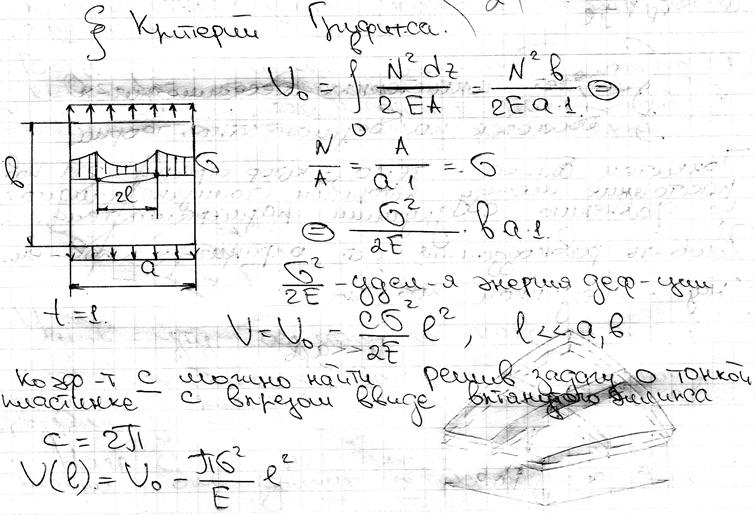 § Критерий Гриффитса.
U₀ = ∫₀ᵇ N² dz / 2EA = N² b / 2E a·1 ⊜
N/A = A/a·1 = σ
⊜ σ²/2E · b a·1
σ²/2E - удел-я энергия деф-ции
b
σ
2l
a
t = 1.
U = U₀ - cσ²/2E l², l << a, b
Коэф-т c можно найти решив задачу о тонкой
пластинке с вырезом ввиде вытянутого эллипса
c = 2π
U(l) = U₀ - πσ²/E l²